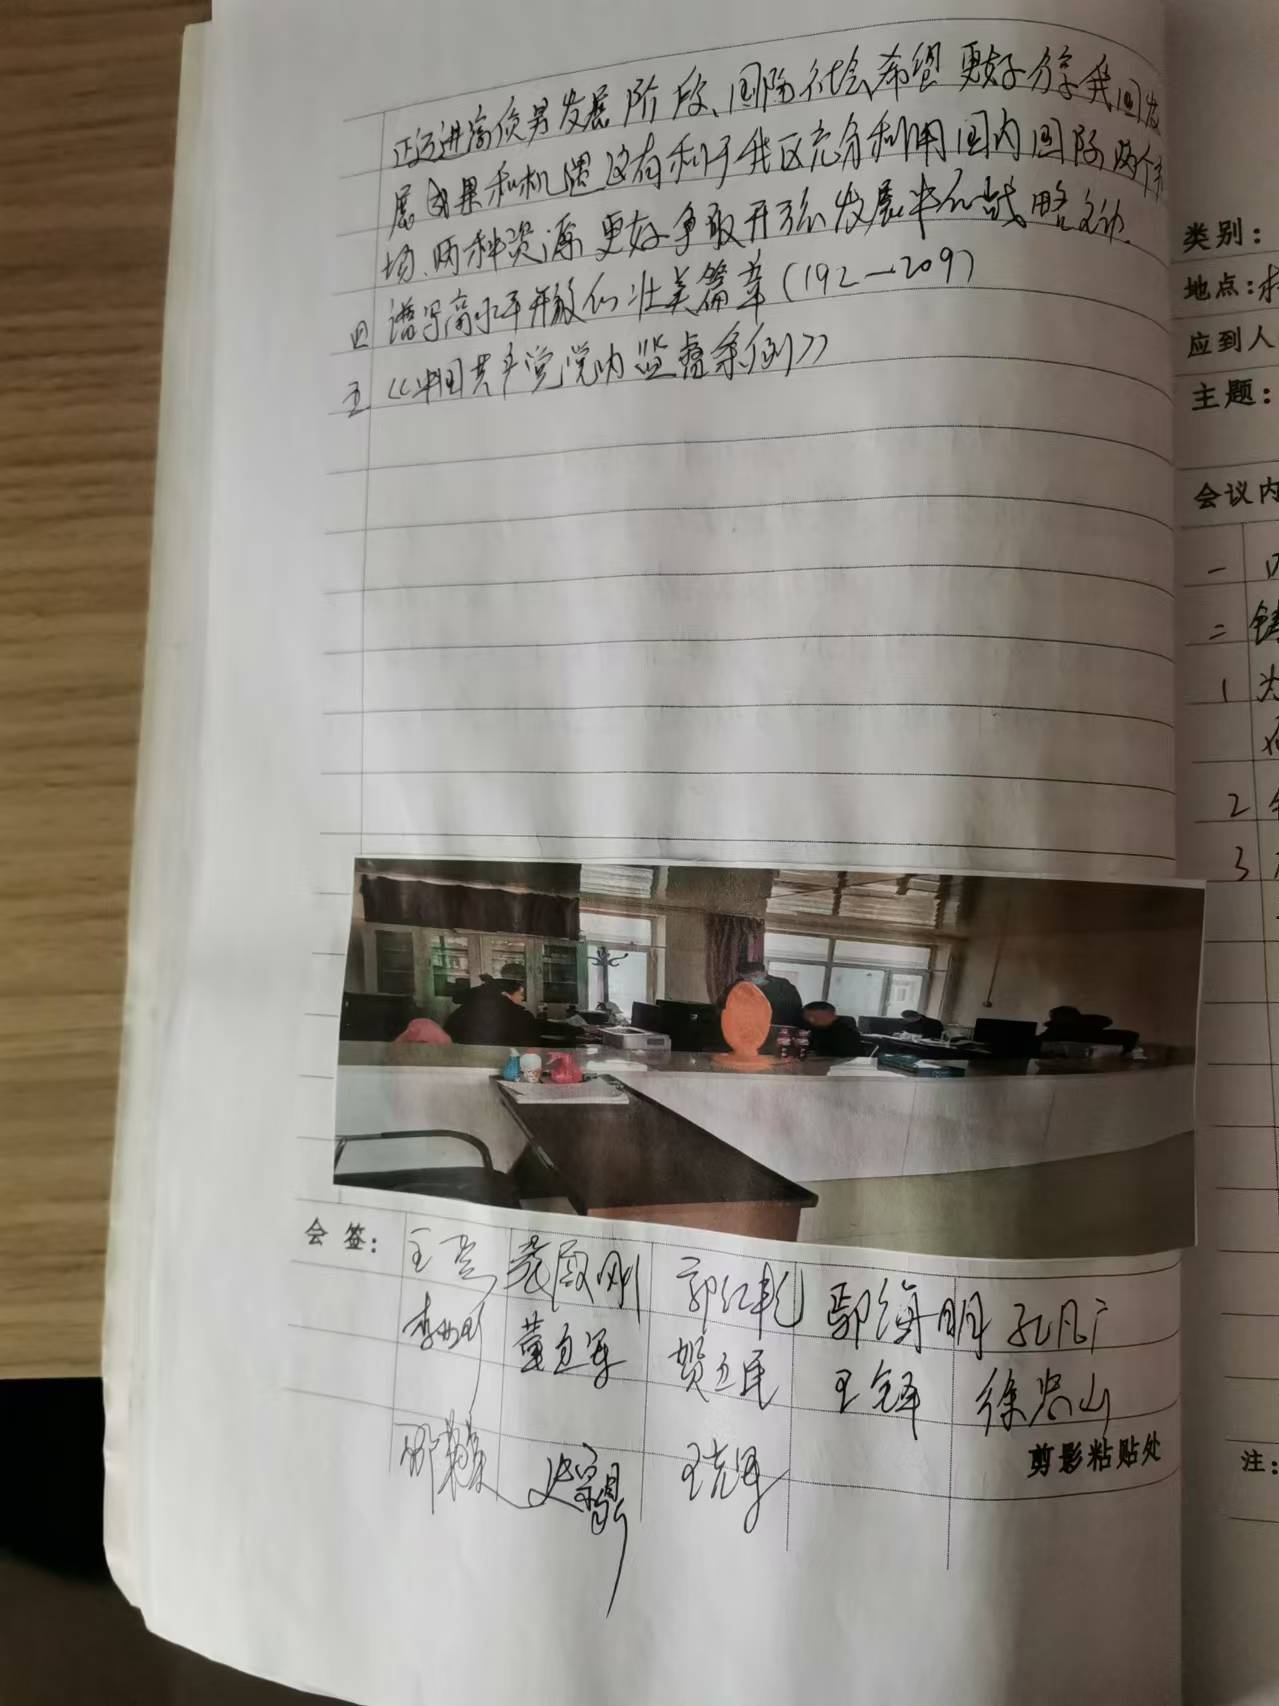 正迈进高质量发展阶段、国际社会希望更好分享我国发
展成果和机遇 这有利于我区充分利用国内国际两个市
场、两种资源 更好争取开放发展中的战略主动.
四 谱写高水平开放的壮美篇章(192—209)
五 《中国共产党党内监督条例》
会签: 郭红乾 鄢海明 孔凡广
董立军 贺立民 王全泽 徐岩山
王克军
剪影粘贴处
类别:
地点:
应到人
主题:
会议内
一
二
1
2
3
注: